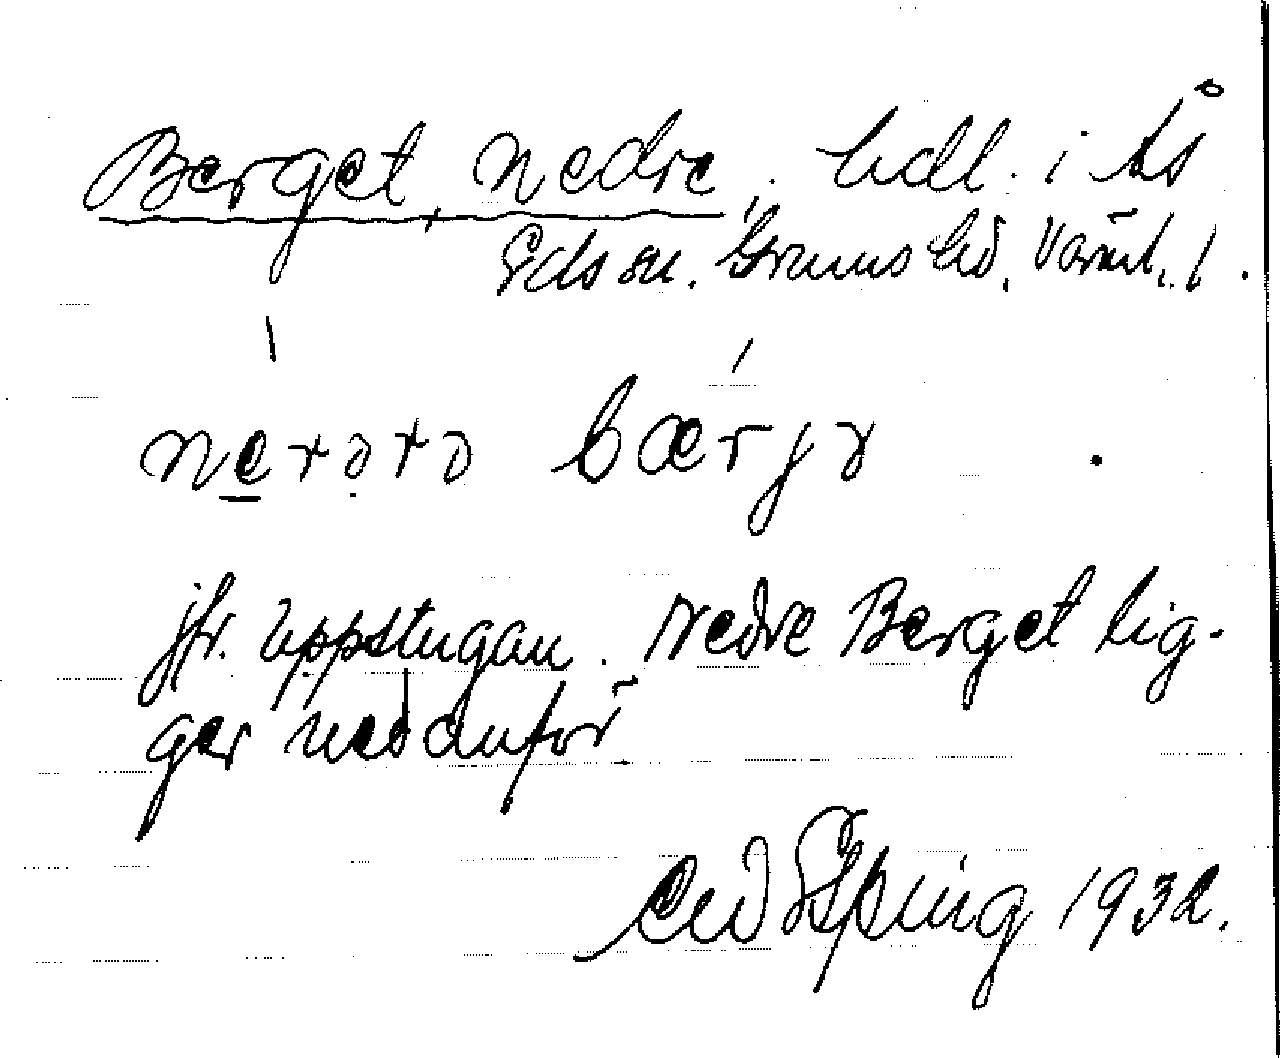 Berget, Nedre, hdl. i Ås
Eds sn. Grums hd, Värml. l.
nerərə bærjə
jfr. Uppstugan. Nedre Berget lig-
ger nedanför
1932.